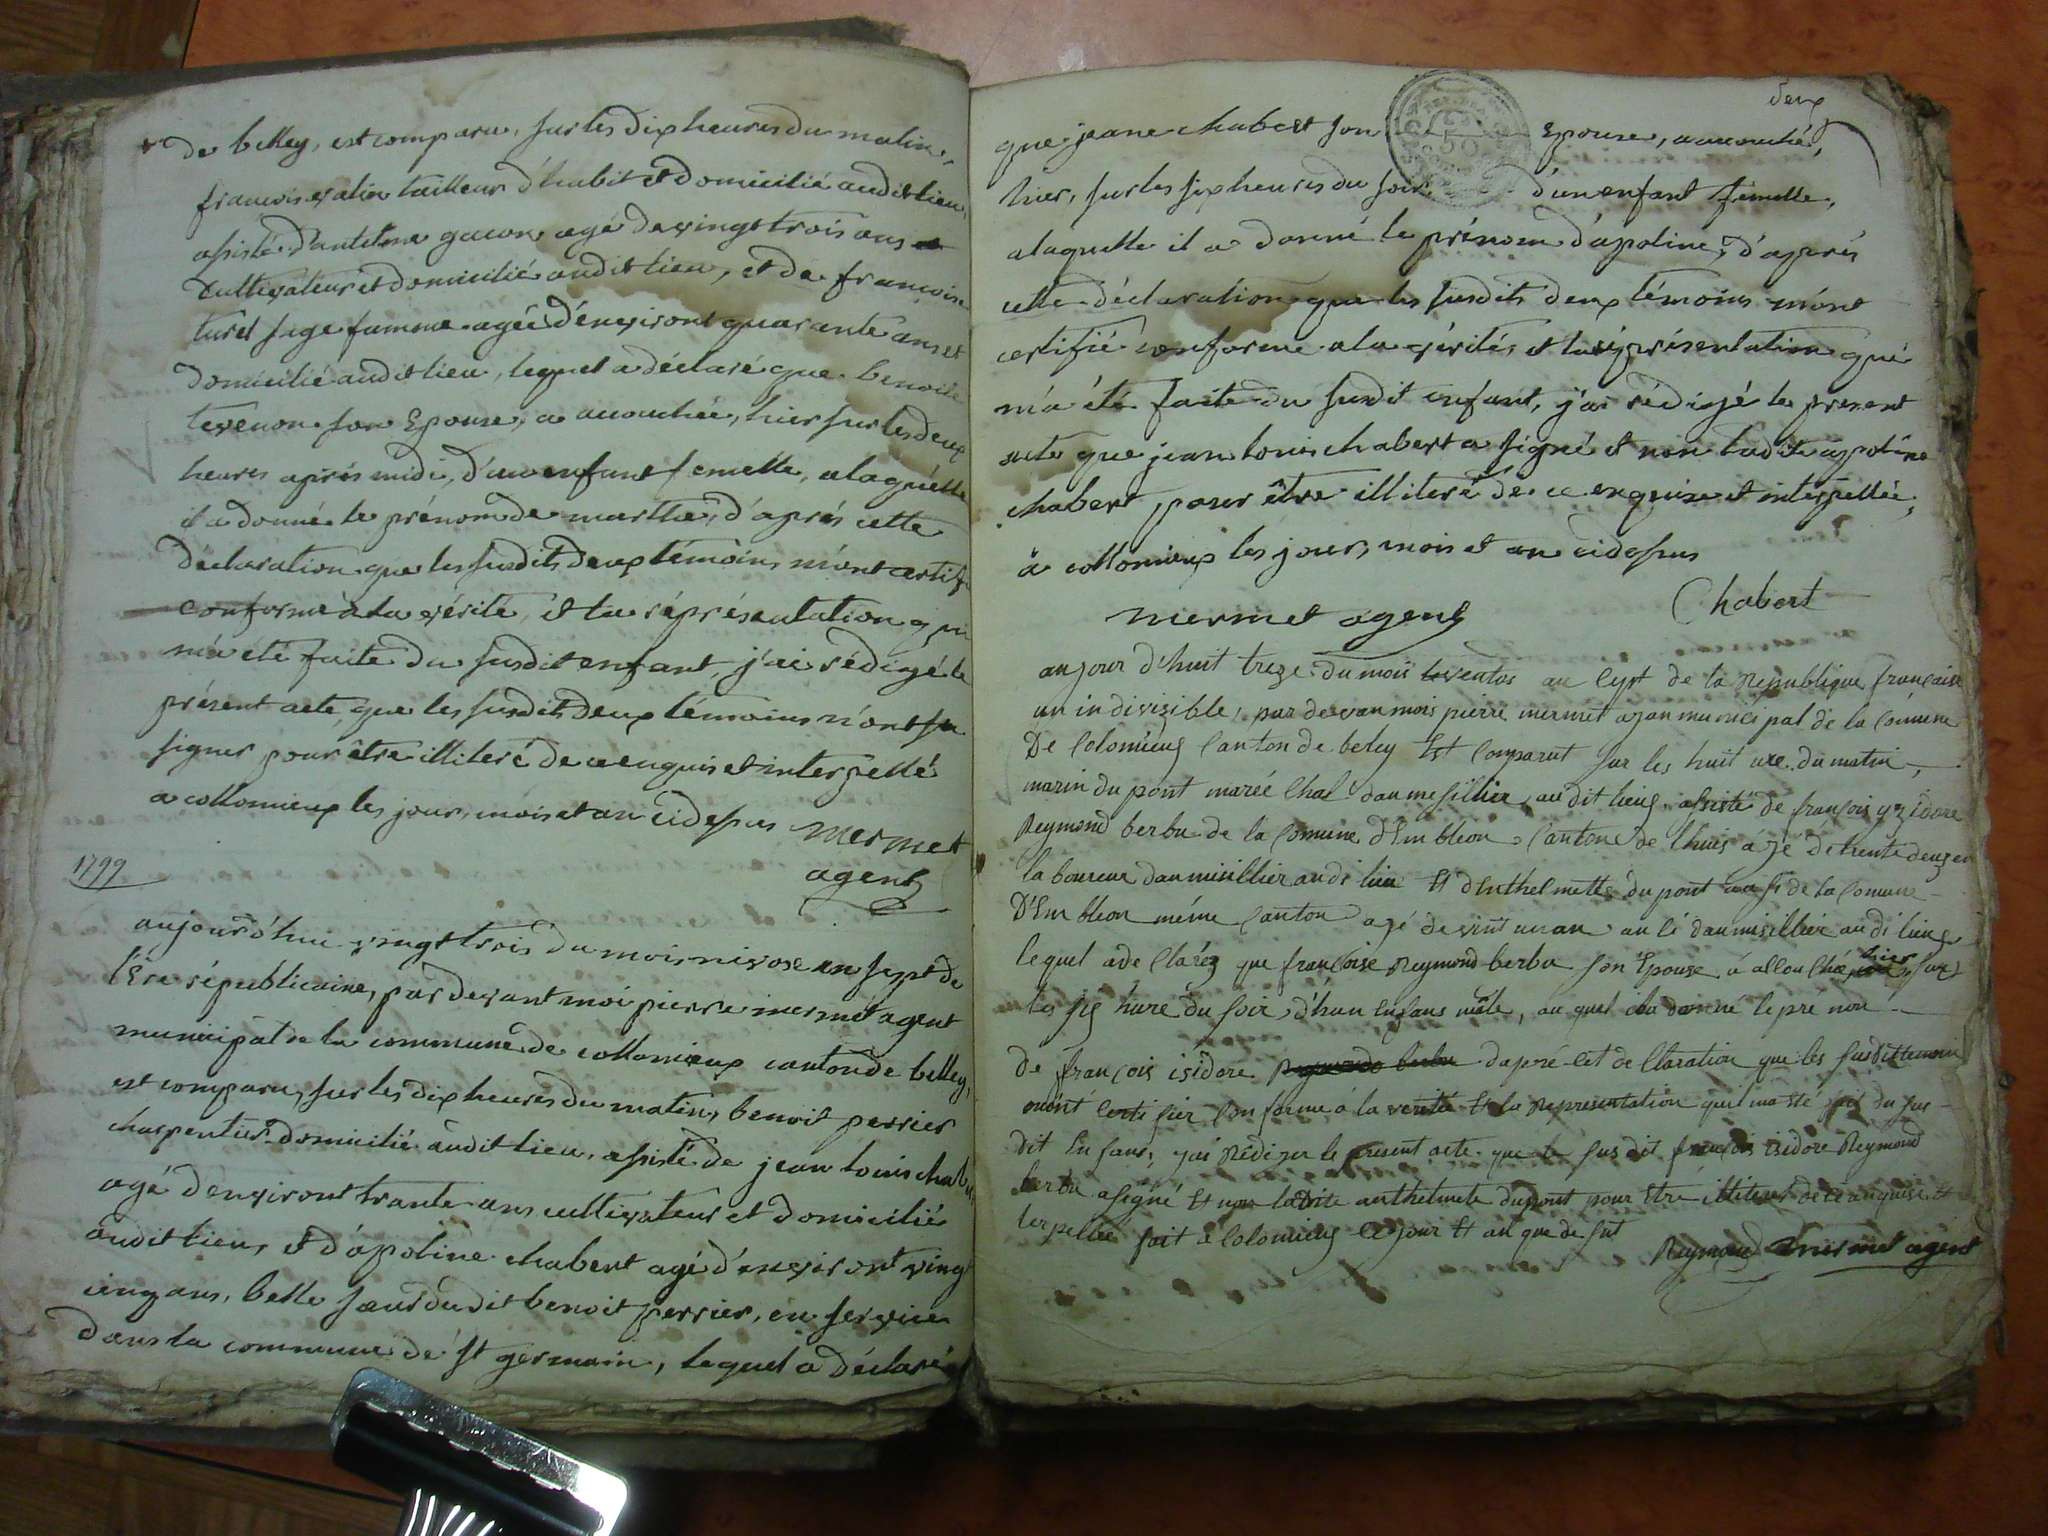 de belley, est comparu, sur les dix heures du matin,
francois vatin tailleur d'habit et domicilié audit lieu,
assisté d'antelme gacon agé de vingt trois ans
cultivateur et domicilié audit lieu, et de francoise
turel sage famme agée d'environt quarante ans et
domicilié audit lieu, lequel a déclaré que benoite
tevenon son Epouse, a acouchée, hier sur les deux
heures aprés midi, d'un enfant femelle, alaquelle
il a donné le prénom de marthe, d'aprés cette
déclaration que les susdits deux témoins m'ont certifi
conforme a la vérité, et la réprésentation qui
m'a été faite du susdit enfant, j'ai rédigé le
présent acte que les susdits deux témoins n'ont su
signer pour être illiteré de ce enquis et interpellé
a collomieux les jour, mois et an cidessus mermet
agent
1799
aujourd'hui vingt trois du mois nivose an sept de
l'Ere républicaine, par devant moi pierre mermet agent
municipal de la commune de collomieux canton de belley,
est comparu, sur les dix heures du matin, benoit perrier
charpentier domicilié audit lieu, assisté de jean louis chaber
agé d'environt trante ans cultivateur et domicilié
audit lieu, et d'apoline chabert agé d'environt vingt
cinq ans, belle sœur dudit benoit perrier, en service
dans la commune de st germain, lequel a déclaré
deux
que jeane chabert son Epouse, a acouchée,
hier, sur les six heures du soir d'un enfant fémelle,
alaquelle il a donné le prénom d'apoline, d'aprés
cette déclaration que les susdits deux témoins m'ont
certifié conforme a la vérité, et la réprésentation qui
m'a été faite du susdit enfant, j'ai rédigé le present
acte que jean louis chabert a signé et non ladite apoline
chabert, pour être illiteré de ce enquise et interpellée,
a collomieux les jour, mois et an cidessus
Chabert
mermet agent
aujour d'huit treze du mois ventos an Cept de la République française
un indivisible, par devan mois pierre mermet ajan municipal de la Comune
De Colomieux Canton de beley Est Comparut sur les huit ure du matin,
marin du pont maréé Chal daumesillier, au dit lieux assisté de françois yzidore
Reymond berbu de la Comune d'Embleon Canton de lhuis ájé de trente deux an
la boureur daumisillier au di lieu Et d'Enthelmette du pont de la Comune
D'Embleon méme Canton ajé de vint un an daumisillier au di lieux
lequel a de Claréz que francoise Reymond berbu son Epouse á allou Ché hier sur
les siz hure du soir, d'hun Enfans mâle, au quel la donné le pré non
de françois isidore Reymond berbu dapré cet de Claration que les susdit temoin
mónt Certifier Conforme á la verite Et la Representation quil ma été du sus
dit Enfans, jai Rédizer le present acte que le sus dit françois isidore Reymond
berbu a signé Et non ladite anthelmete dupont pour Etre illiteré de ce anquise Et
terpellée fait a Colomieux le jour Et an que de sut
Reymond mermet agent